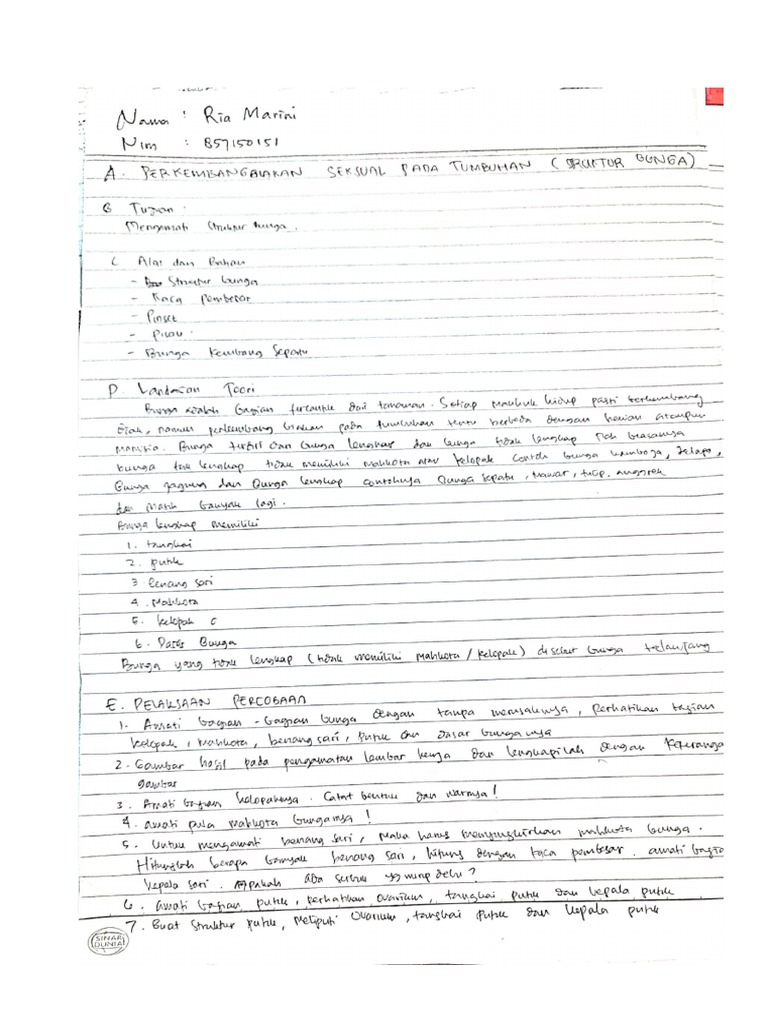 Nama : Ria Marini
Nim : 857150151
A. PERKEMBANGBIAKAN SEKSUAL PADA TUMBUHAN (STRUKTUR BUNGA)
B Tujuan :
Mengamati struktur bunga.
C Alat dan Bahan
- Struktur bunga
- Kaca Pembesar
- Pinset
- Pisau
- Bunga Kembang Sepatu
D. Landasan Teori
Bunga adalah bagian tercantik dari tanaman. Setiap makhluk hidup pasti berkembang
biak, namun perkembang biakan pada tumbuhan tentu berbeda dengan hewan ataupun
Manusia. Bunga terdiri dari bunga lengkap dan bunga tidak lengkap biasanya
bunga tak lengkap tidak memiliki mahkota atau kelopak contoh bunga kamboja, kelapa,
Bunga jagung dan Bunga lengkap contohnya Bunga sepatu, mawar, tulip, anggrek
dan masih banyak lagi.
Bunga lengkap memiliki
1. tangkai
2. putik
3. Benang sari
4. Mahkota
5. kelopak
6. Dasar Bunga
Bunga yang tidak lengkap (tidak memiliki Mahkota / kelopak) disebut bunga telanjang
E. PELAKSAAN PERCOBAAN
1. Amati bagian - bagian bunga dengan tanpa merusaknya, perhatikan bagian
kelopak, mahkota, benang sari, putik dan dasar bunganya
2. Gambar hasil pada pengamatan lembar kerja dan lengkapilah dengan keteranga
gambar
3. Amati bagian kelopaknya. Catat bentuk dan warnya!
4. amati pula mahkota bunganya!
5. Untuk mengamati benang sari, maka harus menyingkirkan mahkota bunga.
Hitunglah berapa banyak benang sari, hitung dengan kaca pembesar. amati bagia
kepala sari. Apakah ada serbuk yg mirip debu?
6. amati bagian putik, perhatikan ovarium, tangkai putik dan kepala putik
7. Buat struktur putik, meliputi ovarium, tangkai putik dan kepala putik
SINAR
DUNIA